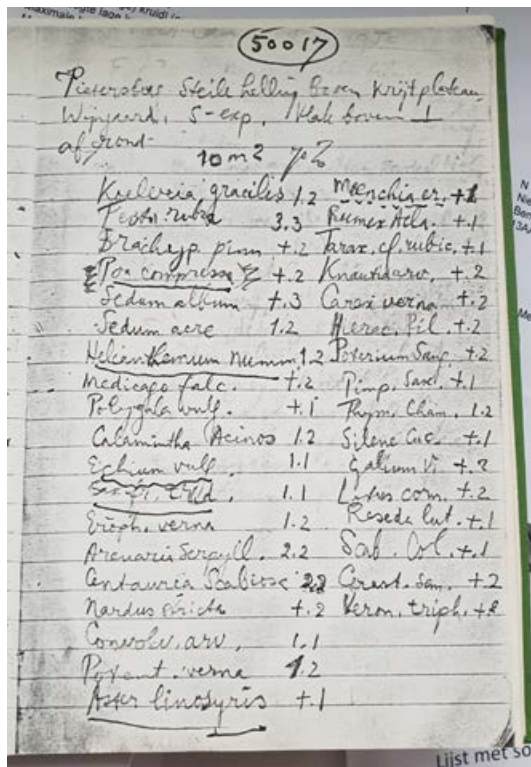 50017
Pietersberg Steile helling boven Krijtplateau
Wijngaard, S-exp. Vlak boven
afgrond.
10 m2 70%
Koeleria gracilis 1.2
Festu. rubra 3.3
Brachyp. pinn +.2
Poa compressa +.2
Sedum album +.3
Sedum acre 1.2
Helianthemum numm. 1.2
Medicago falc. +.2
Polygala vulg. +.1
Calamintha Acinos 1.2
Echium vulg. 1.1
Saxifr. trid. 1.1
Eroph. verna 1.2
Arenaria Serpyll. 2.2
Centauria Scabiosa 2.2
Nardus stricta +.2
Convolv. arv. 1.1
Potent. verna 1.2
Aster linosyris +.1
Moenchia er. +.1
Rumex Aclla. +.1
Tarax. cf. rubic. +.1
Knautia arv. +.2
Carex verna +.2
Hierac. Pil. +.2
Poterium Sang. +.2
Pimp. Saxi. +.1
Thym. Cham. 1.2
Silene Cuc. +.1
Galium V. +.2
Lotus corn. +.2
Reseda lut. +.1
Scab. Col. +.1
Cerast. sem. +.2
Veron. triph. +.2
Lijst met so